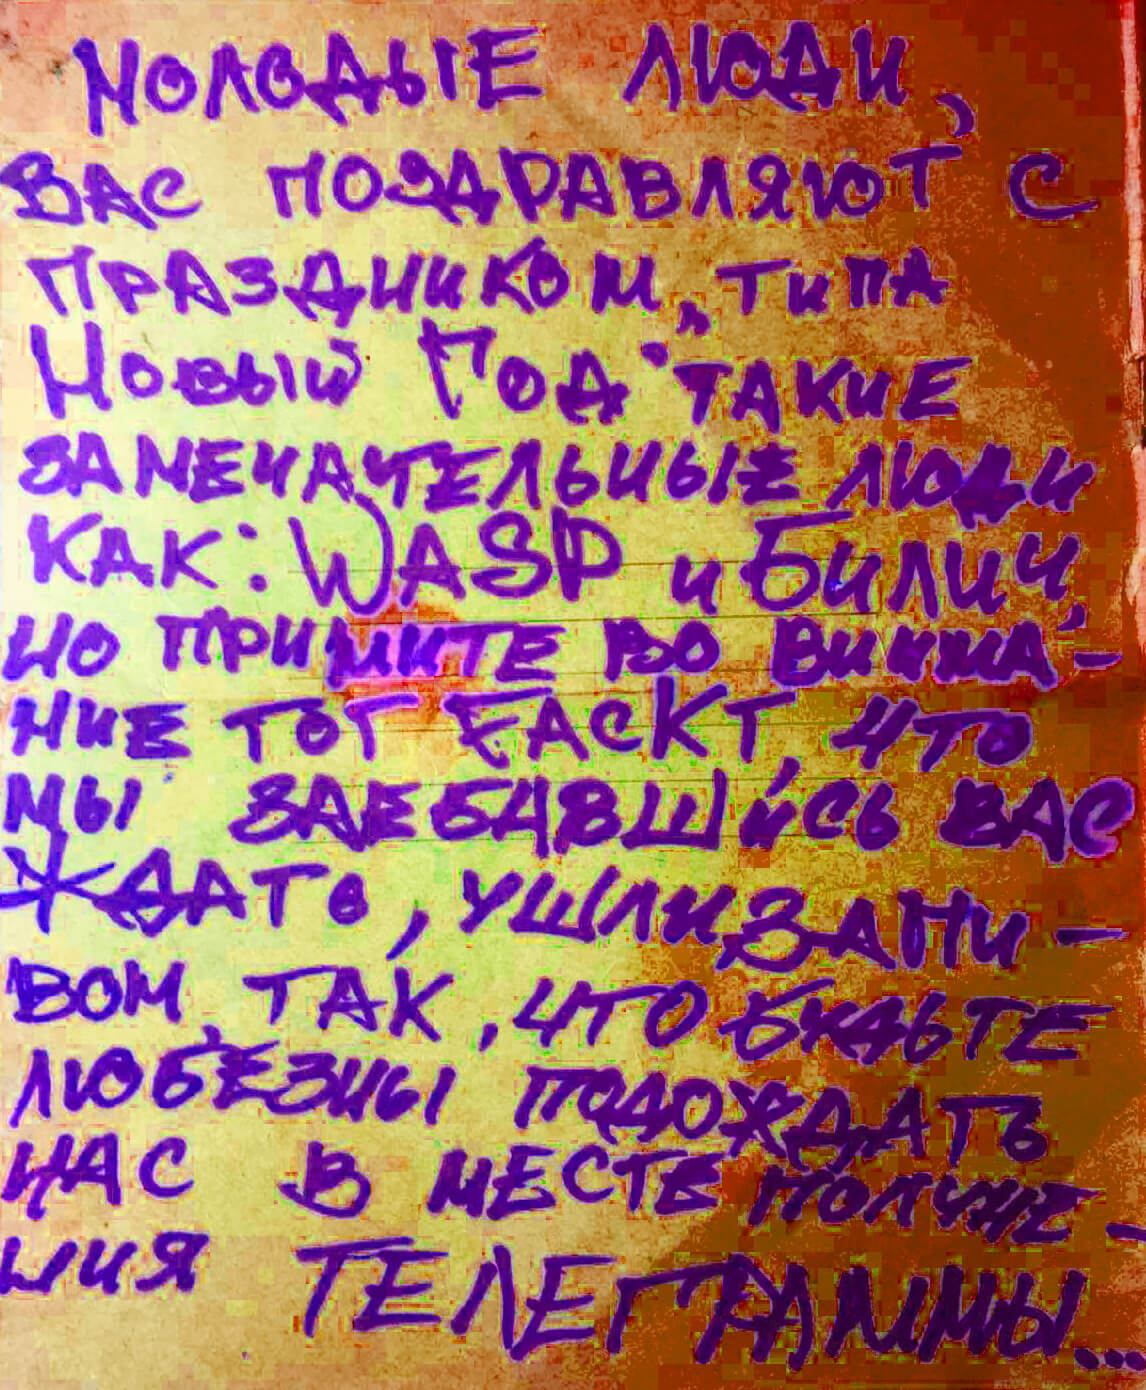 Молодые люди,
Вас поздравляют с
праздником, типа
"Новый Год" такие
замечательные люди
как: WASP и Билич,
но примите во внима-
ние тот FАсКТ, что
мы заебавшись вас
ждать, ушли за пи-
вом, так, что будьте
любезны подождать
нас в месте получе-
ния ТЕЛЕГРАММЫ...